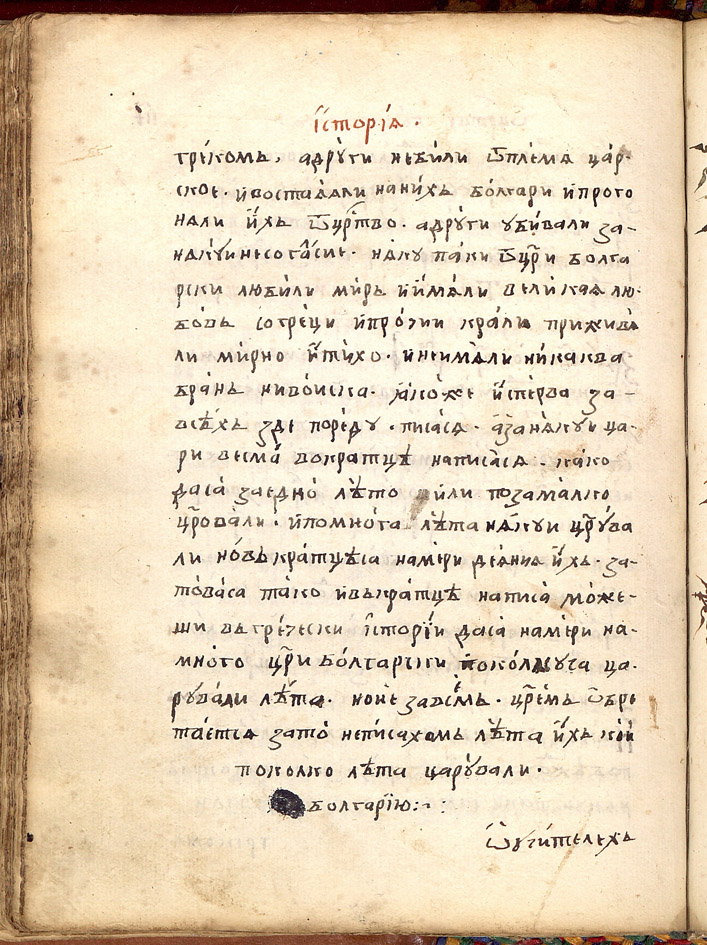 їсторїѧ.
грѣкомь, адрꙋги небили ѿплемѧ цар-
ское. ивоставали нанихь болгари ипрого
нѧли ихь ѿцрⷭтво. адрꙋги убивали за-
нѧкꙋи несогласие. нѧкꙋ паки ѿцри болга
рски любили мирь иимали великаѧ лю-
бовь согреци ипрочии крали приживѧ
ли мирно итихо. инеимали никаква
брань нивоиска. ꙗкоже исперва за-
всѣхь зде поредꙋ. писасѧ. аза нѧкꙋи ца-
ри весма вократцѣ написасѧ. како
даса заедно лѣто или позамалко
црⷭовали. ипомнога лѣта нѧкꙋи црⷭꙋва
ли новькратцѣса намери деяниѧ ихь. за-
товаса тако ивькратцѣ написа може-
ши вьгречески їсторїи даса намери на-
много цри болгарски поколкꙋга ца-
рꙋвали лѣта. ноне завсѣмь. цремь ѡбре
таетсѧ зато неписахомь лѣта ихь кои
поколко лѣта царꙋвали.
болгарїю:~:
ѡучителехь